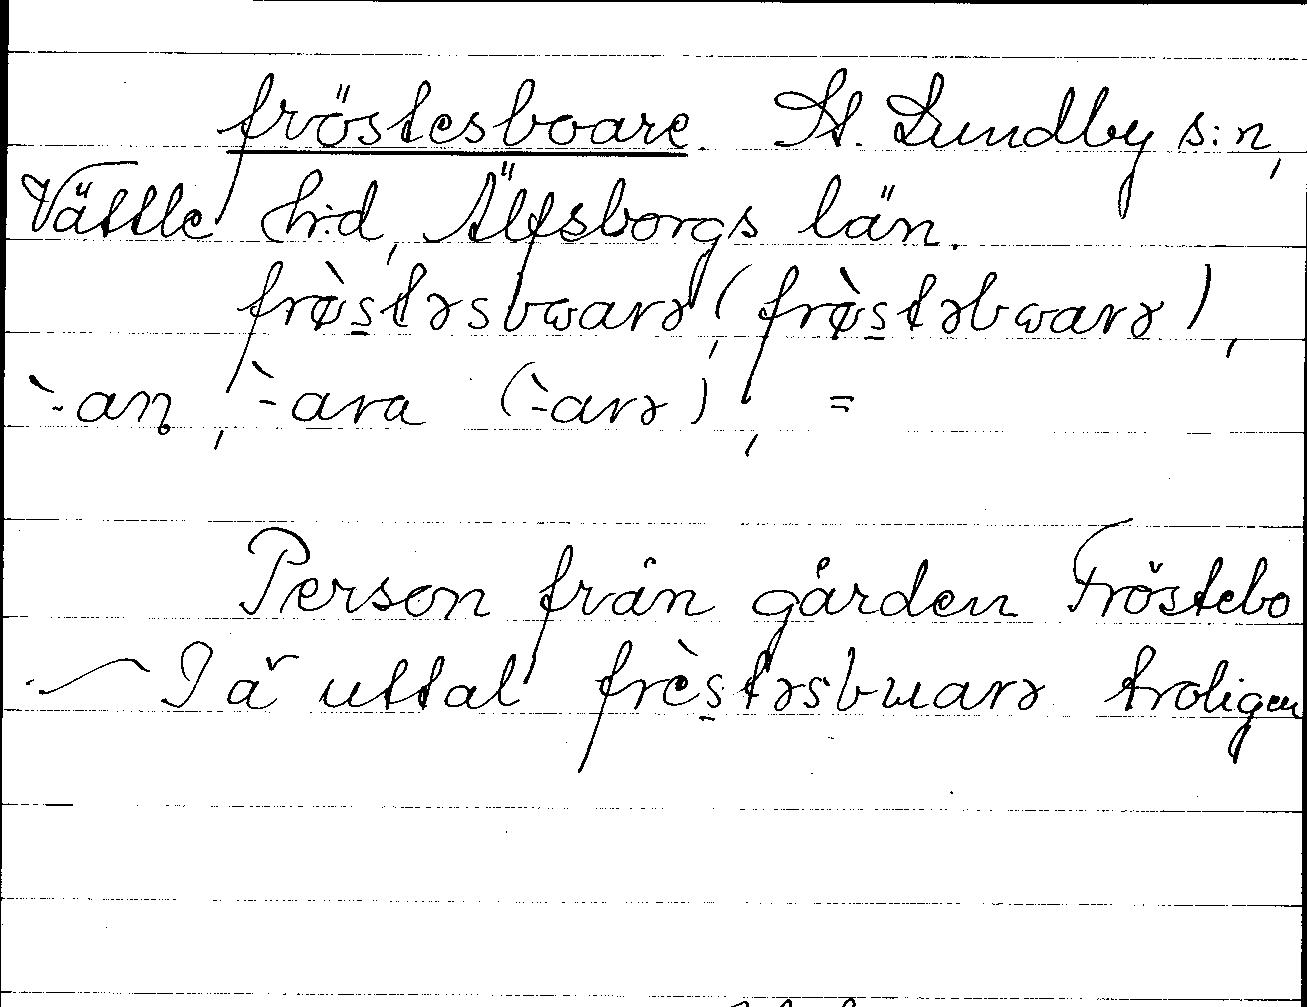 fröstesboare. St. Lundby s:n,
Vättle h:d, Älfsborgs län.
frø̀stəsbwarə (frø̀stəbwarə),
`-an, `-ara (`-arə), =
Person från gården Fröstebo
I ä uttal frèstəsbuarə troligen